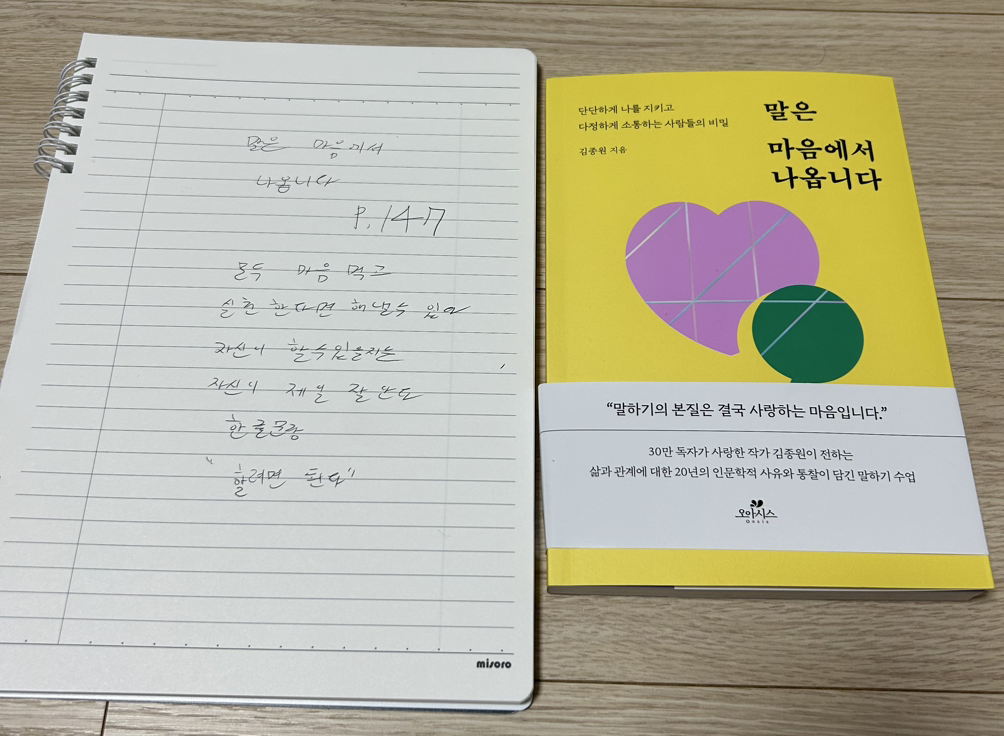 말은 마음에서
나옵니다
P.147
모두 마음 먹고
실천 한다면 해낼수 있다
자신이 할수있을지는
자신이 제일 잘 안다
한글로망
"할려면 된다"
misoro
단단하게 나를 지키고
다정하게 소통하는 사람들의 비밀
김종원 지음
말은
마음에서
나옵니다
“말하기의 본질은 결국 사랑하는 마음입니다.”
30만 독자가 사랑한 작가 김종원이 전하는
삶과 관계에 대한 20년의 인문학적 사유와 통찰이 담긴 말하기 수업
오아시스
Oasis